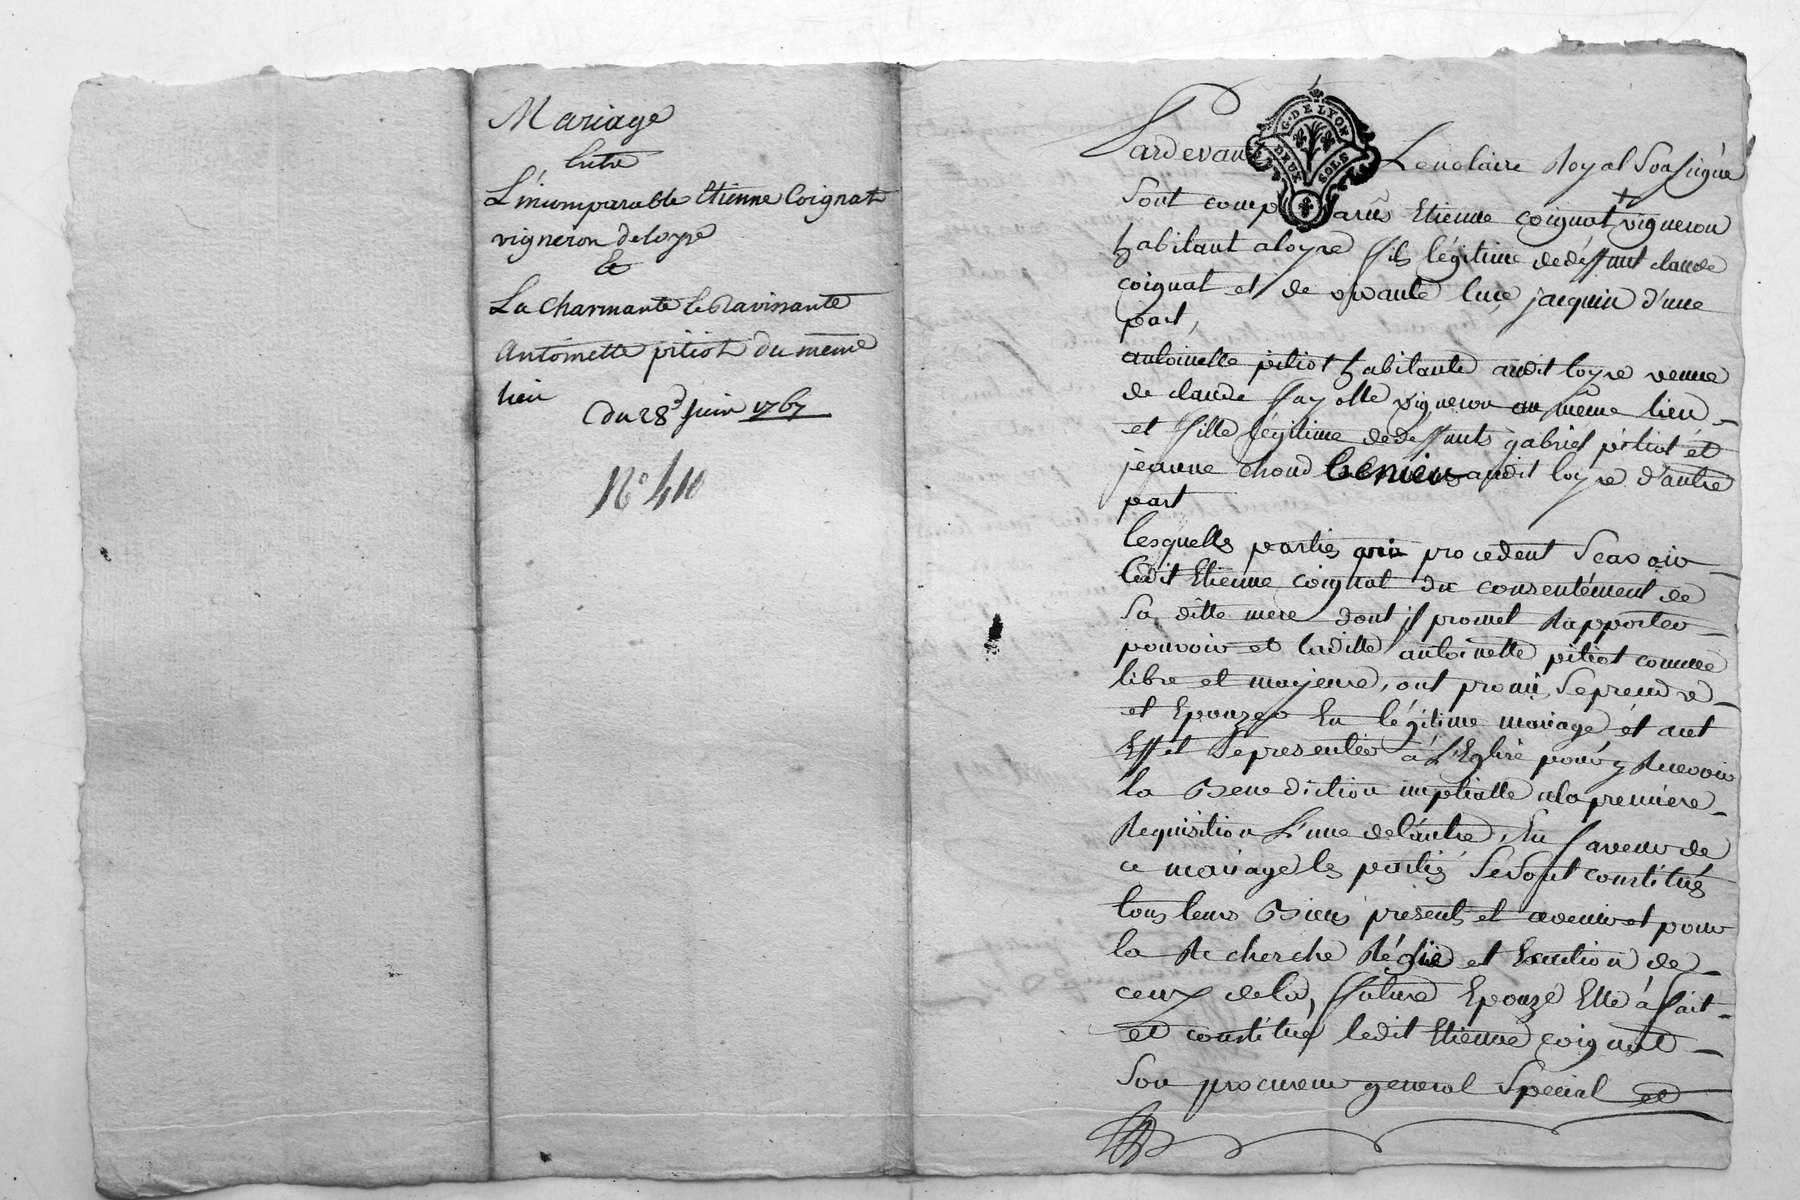 Mariage
Entre
L'incomparable Etienne Coignat
vigneron de loyse
&
La charmante le Ravissante
Antoinette pitiot du même
lieu
du 28 Juin 1767
N° 410
G. DE LYON
DEUX SOLS
Pardevant Le notaire Royal Soussigné
Sont comparus Etienne coignat vigneron
habitant a loyse fils légitime de déffunt claude
coignat et de vivante Luce jacquin d'une
part,
antoinette pitiot habitante audit loyse veuve
de claude fayolle vigneron au même lieu
et fille légitime de deffunts gabriel pitiot et
jeanne chond audit loyse d'autre
part
lesquelles parties procedent Scavoir
ledit Etienne coignat du consentement de
Sa ditte mere dont il promet Rapporter
pouvoir et laditte antoinette pitiot comme
libre et majeure, ont promis Se prendre
et Epouzer En légitime mariage et a cet
Effet Se presenter à L'Eglise pour y Recevoir
la Benediction nuptialle a la premiere
Requisition L'une de l'autre, En faveur de
ce mariage les parties Se Sont constitués
tous leurs Biens presents et avenir et pour
la Recherche Régie et Exaction de
ceux de la future Epouze Elle à fait
et constitué ledit Etienne coignat
Son procureur general Special et